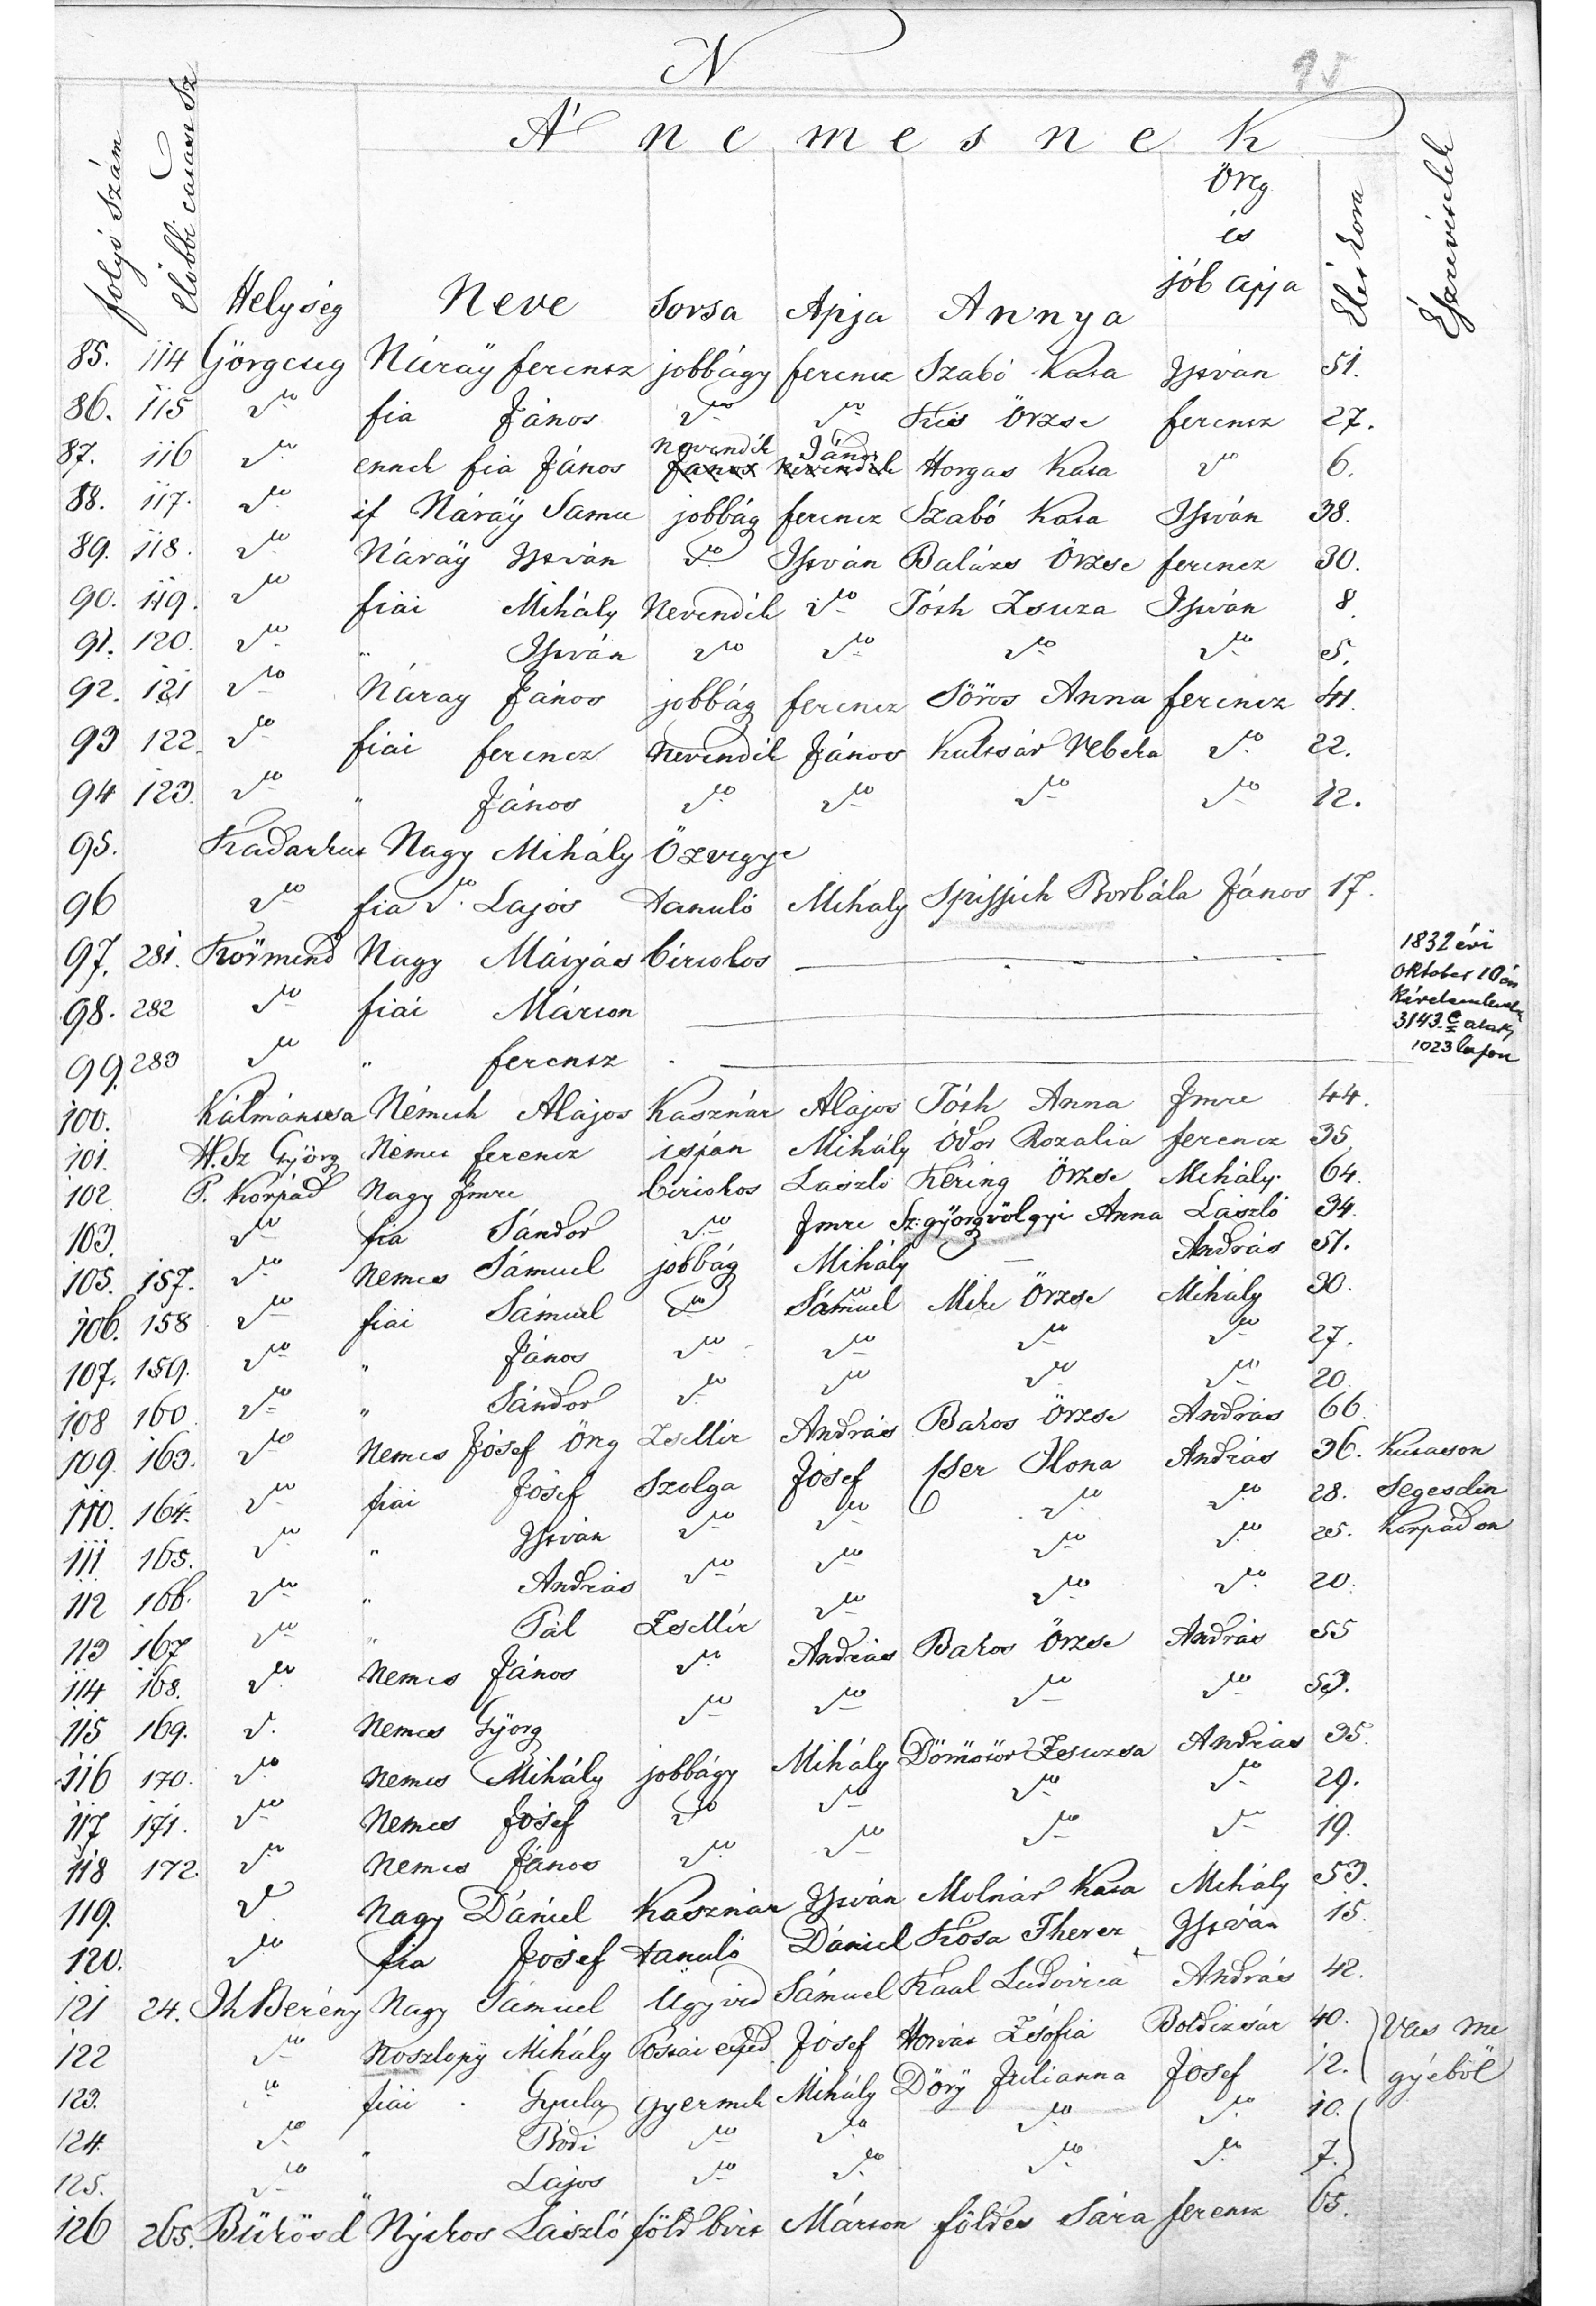 N
95
A' nemesnek
folyó Szám
Előbbi Sz
Helység
Neve
Sorsa
Apja
Annya
Örg és jób apja
Élet kora
Észrevételek
85. 114 Görgeteg Náraÿ ferencz jobbágy ferencz Szabó Kata István 51.
86. 115 do fia János do do Kis Örzse ferencz 27.
87. 116 do ennek fia János Nevendék János Horgas Kata do 6.
88. 117. do if Náraÿ Samu jobbág ferencz Szabó Kata István 38.
89. 118. do Náraÿ István do István Balázs Örzse ferencz 30.
90. 119. do fiai Mihály Nevendék do Tóth Zsuza István 8.
91. 120. do " István do do do do 5.
92. 121 do Náray János jobbág ferencz Sörös Anna ferencz 41.
93 122. do fiai ferencz Nevendék János Kultsár Rebeka do 22.
94 123. do " János do do do do 12.
95. Kadarkut Nagy Mihály Özvegye
96 do fia do. Lajos tanuló Mihály Spissich Borbála János 17.
97. 281. Körmend Nagy Mátyás birtokos 1832 évi
98. 282 do fiai Márton Oktober 10én
99. 283 do " ferentz 3143. alatt 1023 lapon
100. Kálmáncsa Németh Alajos Kasznár Alajos Tóth Anna Imre 44.
101. H. Sz Györg Nemes ferencz ispán Mihály Ódor Rozalia ferencz 35.
102 P. Korpád Nagy Imre birtokos László Kéring Örzse Mihály 64.
103. do fia Sándor do Imre Sz: györgvölgyi Anna László 34.
105. 157. do Nemes Sámuel jobbág Mihály — András 51.
106. 158 do fiai Sámuel do Sámuel Mike Örzse Mihály 30.
107. 159. do " János do do do do 27.
108 160. do " Sándor do do do do 20.
109. 163. do Nemes Jósef Örg Zsellér András Bakos Örzse András 66.
110. 164. do fiai Jósef Szolga Jósef Cser Ilona András 36. Kutason
111 165. do " István do do do do 28. Segesdin
112 166. do " András do do do do 25. Korpádon
113 167 do " Pál Zsellér do do do 20.
114 168. do Nemes János do András Bakos Örzse András 55
115 169. d. Nemes Györg do do do do 53.
116 170. do Nemes Mihály jobbágy Mihály Dömötör Zsuzsa András 35.
117 171. do Nemes Jósef do do do do 29.
118 172. do Nemes János do do do do 19.
119. do Nagy Dániel Kasznár István Molnár Kata Mihály 53.
120. do fia Jósef tanuló Dániel Kósa Therez István 15.
121 24. Ih Berény Nagy Sámuel Ügyvéd Sámuel Kaal Ludovica András 42.
122 do Noszlopÿ Mihály Mihály Jósef Horvát Zsófia Boldizsár 40. Vas me
123. do fiai Gyula gyermek Mihály Döry Julianna Jósef 12. gyéböl
124. do " Bódi do do do do 10.
125. do " Lajos do do do do 7.
126 265. Bükösd Nyikos László föld birt Márton földés Sára ferencz 65.